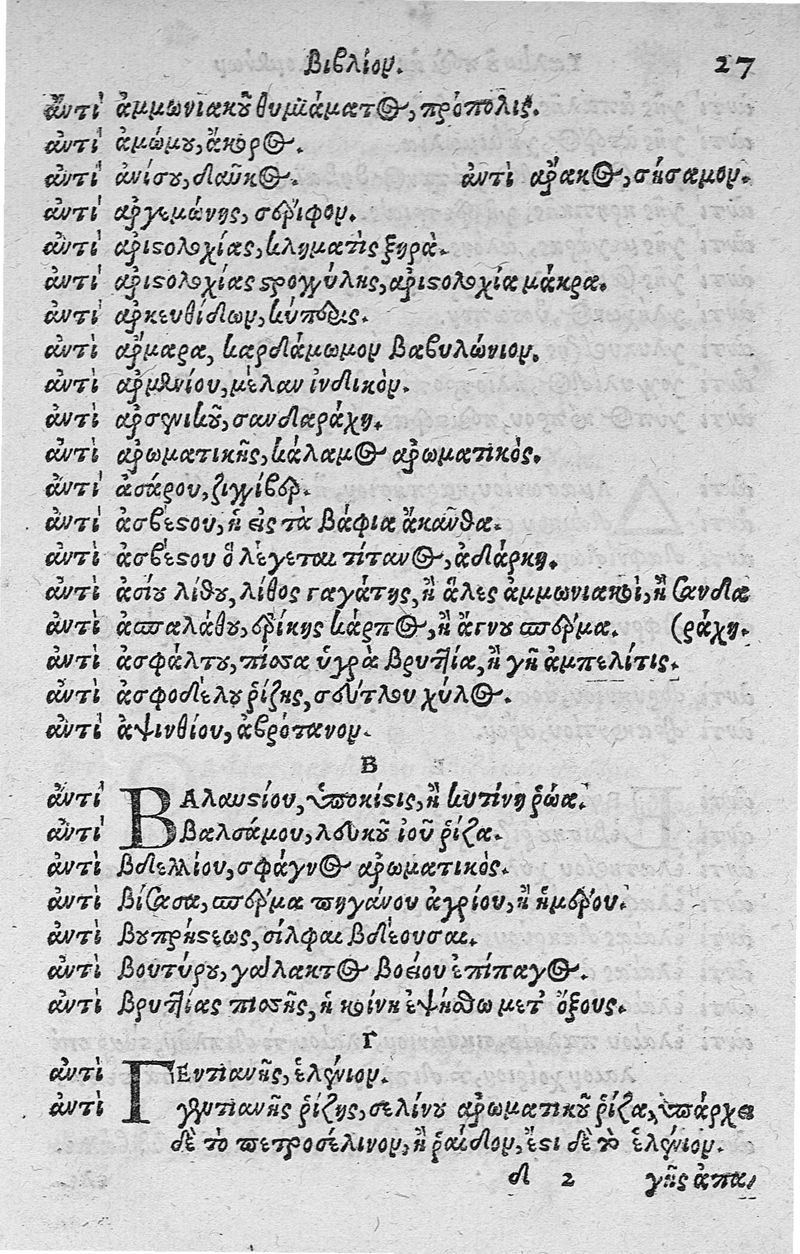 Βιβλίον. 27
ἀντὶ ἀμμωνιακοῦ θυμιάματος, πρόπολις.
ἀντὶ ἀμώμου, ἄκορος.
ἀντὶ ἀνίσου, δαῦκος. ἀντὶ ἄρακος, σήσαμον.
ἀντὶ ἀργεμώνης, σέριφον.
ἀντὶ ἀριστολοχίας, κληματὶς ξηρὰ.
ἀντὶ ἀριστολοχίας στρογγύλης, ἀριστολοχία μάκρα.
ἀντὶ ἀρκευθίδων, κύπερις.
ἀντὶ ἄρμαρα, καρδάμωμον Βαβυλώνιον.
ἀντὶ ἀρμενίου, μέλαν ἰνδικὸν.
ἀντὶ ἀρσενικοῦ, σανδαράχη.
ἀντὶ ἀρωματικῆς, κάλαμος ἀρωματικὸς.
ἀντὶ ἀσάρου, ζιγγίβερ.
ἀντὶ ἀσβέστου, ἡ εἰς τὰ βάφια ἄκανθα.
ἀντὶ ἀσβέστου ὃ λέγεται τίτανος, ἀδάρκη.
ἀντὶ ἀσίου λίθου, λίθος γαγάτης, ἢ ἅλες ἀμμωνιακοὶ, ἢ σανδα
ἀντὶ ἀσπαλάθου, ἐρίκης κάρπος, ἢ ἄγνου σπέρμα. (ράχη.
ἀντὶ ἀσφάλτου, πίσσα ὑγρὰ βρυττία, ἢ γῆ ἀμπελίτις.
ἀντὶ ἀσφοδέλου ῥίζης, σεύτλου χύλος.
ἀντὶ ἀψινθίου, ἀβρότανον.
Β
ἀντὶ ΒΑλαυστίου, ὑποκίστις, ἢ κυτίνη ῥόα.
ἀντὶ βαλσάμου, λευκοῦ ἰοῦ ῥίζα.
ἀντὶ βδελλίου, σφάγνος ἀρωματικὸς.
ἀντὶ βίσασα, σπέρμα πηγάνου ἀγρίου, ἢ ἡμέρου.
ἀντὶ βυπρήστεως, σίλφαι βδέουσαι.
ἀντὶ βουτύρου, γάλακτος βοείου ἐπίπαγος.
ἀντὶ βρυττίας πίσσης, ἡ κοίνη ἐψήσθω μετ᾽ ὄξους.
Γ
ἀντὶ ΓΕντιανῆς, ἑλένιον.
ἀντὶ γεντιανῆς ῥίζης, σελίνου ἀρωματικοῦ ῥίζα, ὑπάρχει
δὲ τὸ πετροσέλινον, ἢ ῥαίδιον, ἔστι δὲ τὸ ἑλένιον.
d 2 γῆς ἀπα